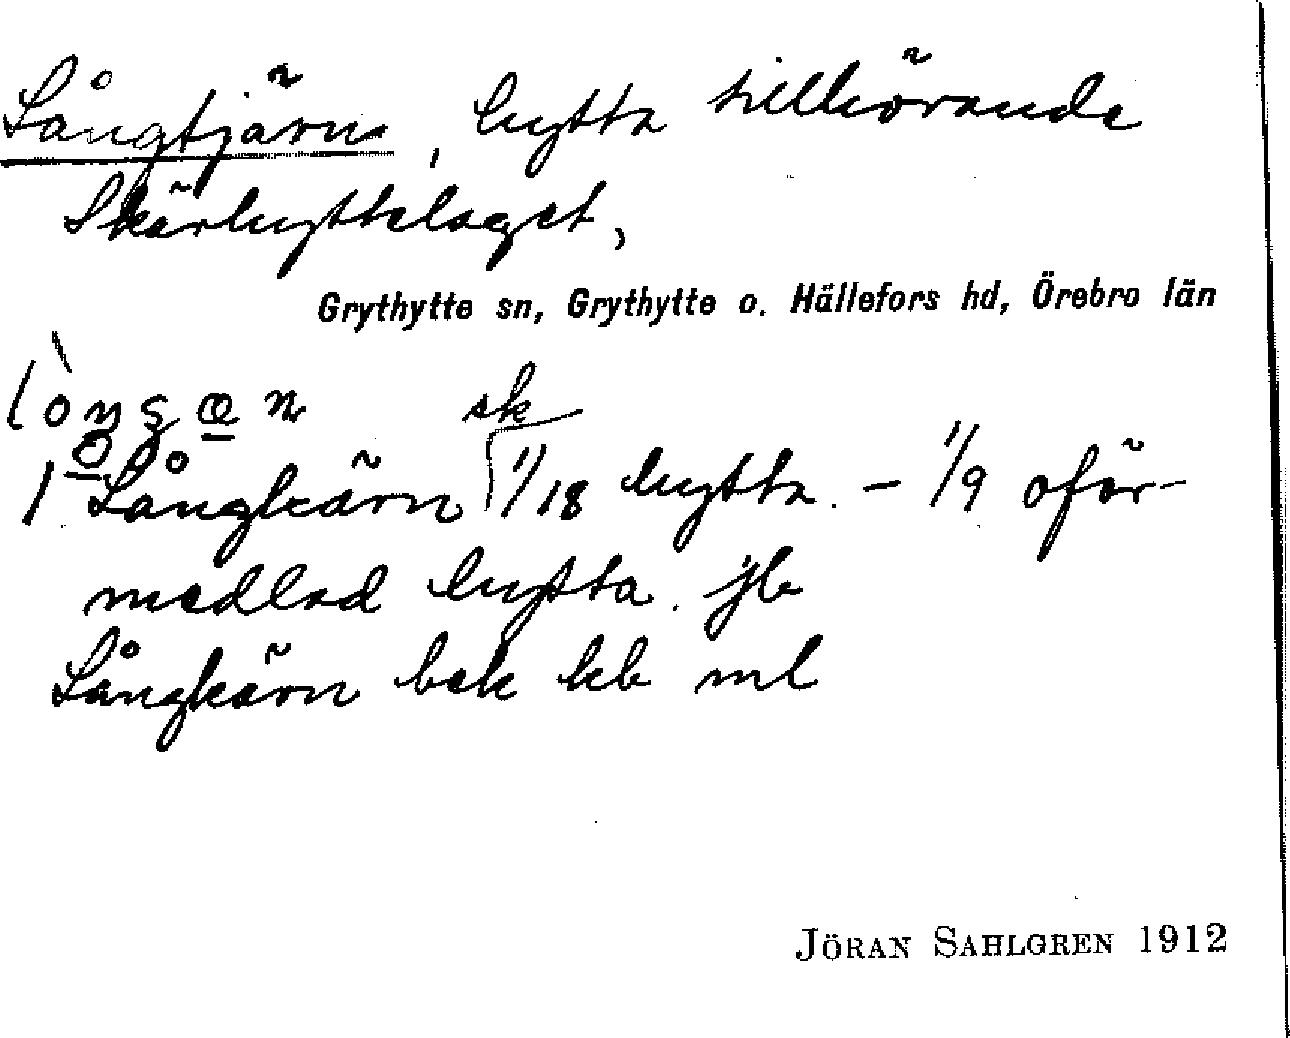 Långtjärn, hytta tillhörande
Skärhyttelaget,
Grythytte sn, Grythytte o. Hällefors hd, Örebro län
sk
1 Långkärn 1/18 hytta. - 1/9 oför-
medlad hytta. jb
Långkärn bek kb ml
JÖRAN SAHLGREN 1912